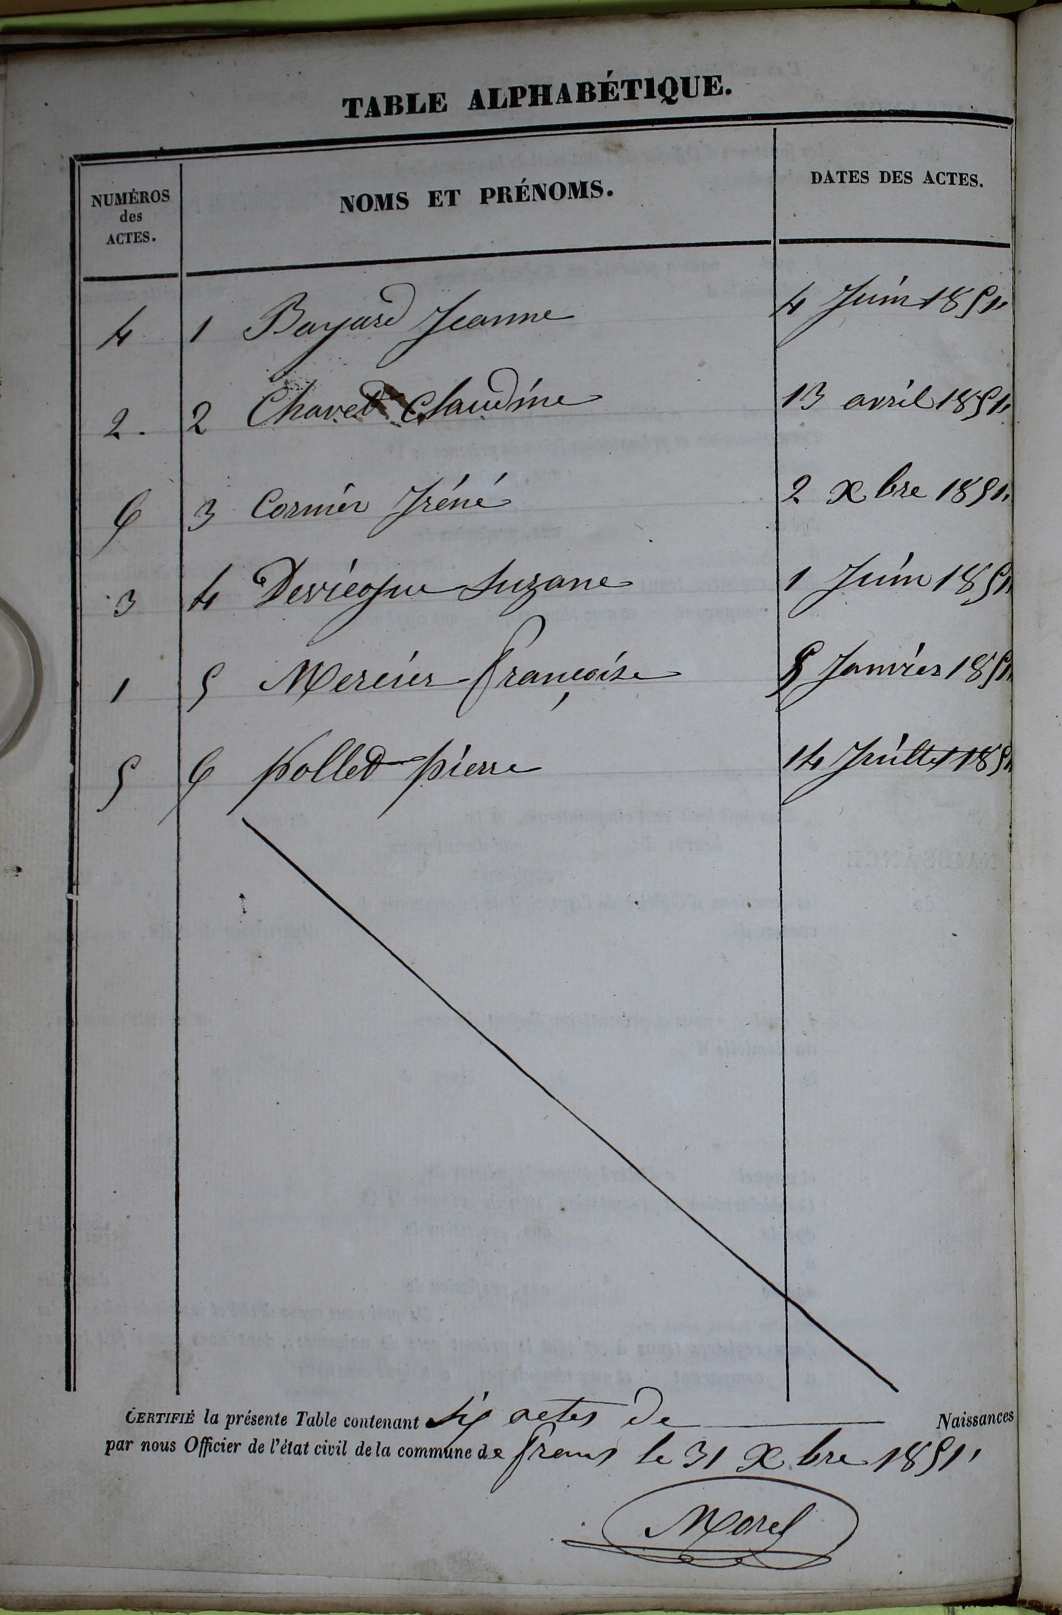 TABLE ALPHABÉTIQUE.
NUMÉROS des ACTES. NOMS ET PRÉNOMS. DATES DES ACTES.
4 1 Bayard Jeanne 4 Juin 1851
2. 2 Chavet Claudine 13 avril 1851
6 3 Cormier Iréné 2 xbre 1851
3 4 Suzane 1 Juin 1851
1 5 Mercier françoise 5 Janvier 1851
5 6 pollet pierre 14 Juillet 1851
CERTIFIÉ la présente Table contenant Six actes de Naissances
par nous Officier de l'état civil de la commune de frans le 31 xbre 1851
Morel